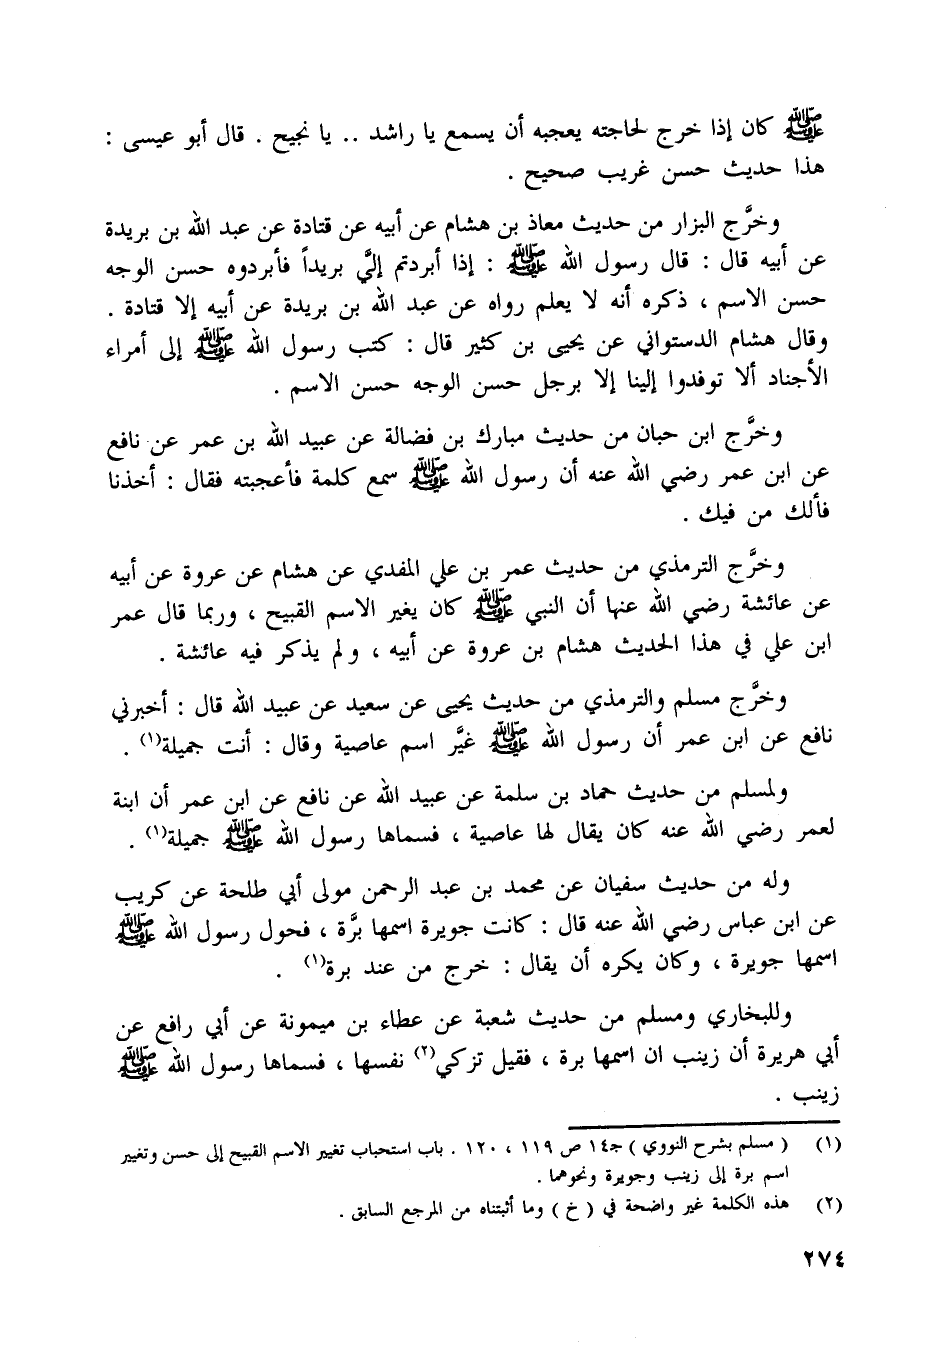 ﷺ كان إذا خرج لحاجته يعجبه أن يسمع يا راشد .. يا نجيح . قال أبو عيسى :
هذا حديث حسن غريب صحيح .
وخرَّج البزار من حديث معاذ بن هشام عن أبيه عن قتادة عن عبد الله بن بريدة
عن أبيه قال : قال رسول الله ﷺ : إذا أبردتم إليَّ بريداً فأبردوه حسن الوجه
حسن الاسم ، ذكره أنه لا يعلم رواه عن عبد الله بن بريدة عن أبيه إلا قتادة .
وقال هشام الدستواني عن يحيى بن كثير قال : كتب رسول الله ﷺ إلى أمراء
الأجناد ألا توفدوا إلينا إلا برجل حسن الوجه حسن الاسم .
وخرَّج ابن حبان من حديث مبارك بن فضالة عن عبيد الله بن عمر عن نافع
عن ابن عمر رضي الله عنه أن رسول الله ﷺ سمع كلمة فأعجبته فقال : أخذنا
فألك من فيك .
وخرَّج الترمذي من حديث عمر بن علي المفدي عن هشام عن عروة عن أبيه
عن عائشة رضي الله عنها أن النبي ﷺ كان يغير الاسم القبيح ، وربما قال عمر
ابن علي في هذا الحديث هشام بن عروة عن أبيه ، ولم يذكر فيه عائشة .
وخرَّج مسلم والترمذي من حديث يحيى عن سعيد عن عبيد الله قال : أخبرني
نافع عن ابن عمر أن رسول الله ﷺ غيَّر اسم عاصية وقال : أنت جميلة(١) .
ولمسلم من حديث حماد بن سلمة عن عبيد الله عن نافع عن ابن عمر أن ابنة
لعمر رضي الله عنه كان يقال لها عاصية ، فسماها رسول الله ﷺ جميلة(١) .
وله من حديث سفيان عن محمد بن عبد الرحمن مولى أبي طلحة عن كريب
عن ابن عباس رضي الله عنه قال : كانت جويرة اسمها برَّة ، فحول رسول الله ﷺ
اسمها جويرة ، وكان يكره أن يقال : خرج من عند برة(١) .
وللبخاري ومسلم من حديث شعبة عن عطاء بن ميمونة عن أبي رافع عن
أبي هريرة أن زينب ان اسمها برة ، فقيل تزكي(٢) نفسها ، فسماها رسول الله ﷺ
زينب .
(١) ( مسلم بشرح النووي ) جـ١٤ ص ١١٩ ، ١٢٠ . باب استحباب تغيير الاسم القبيح إلى حسن وتغيير
اسم برة إلى زينب وجويرة ونحوهما .
(٢) هذه الكلمة غير واضحة في ( خ ) وما أثبتناه من المرجع السابق .
٢٧٤